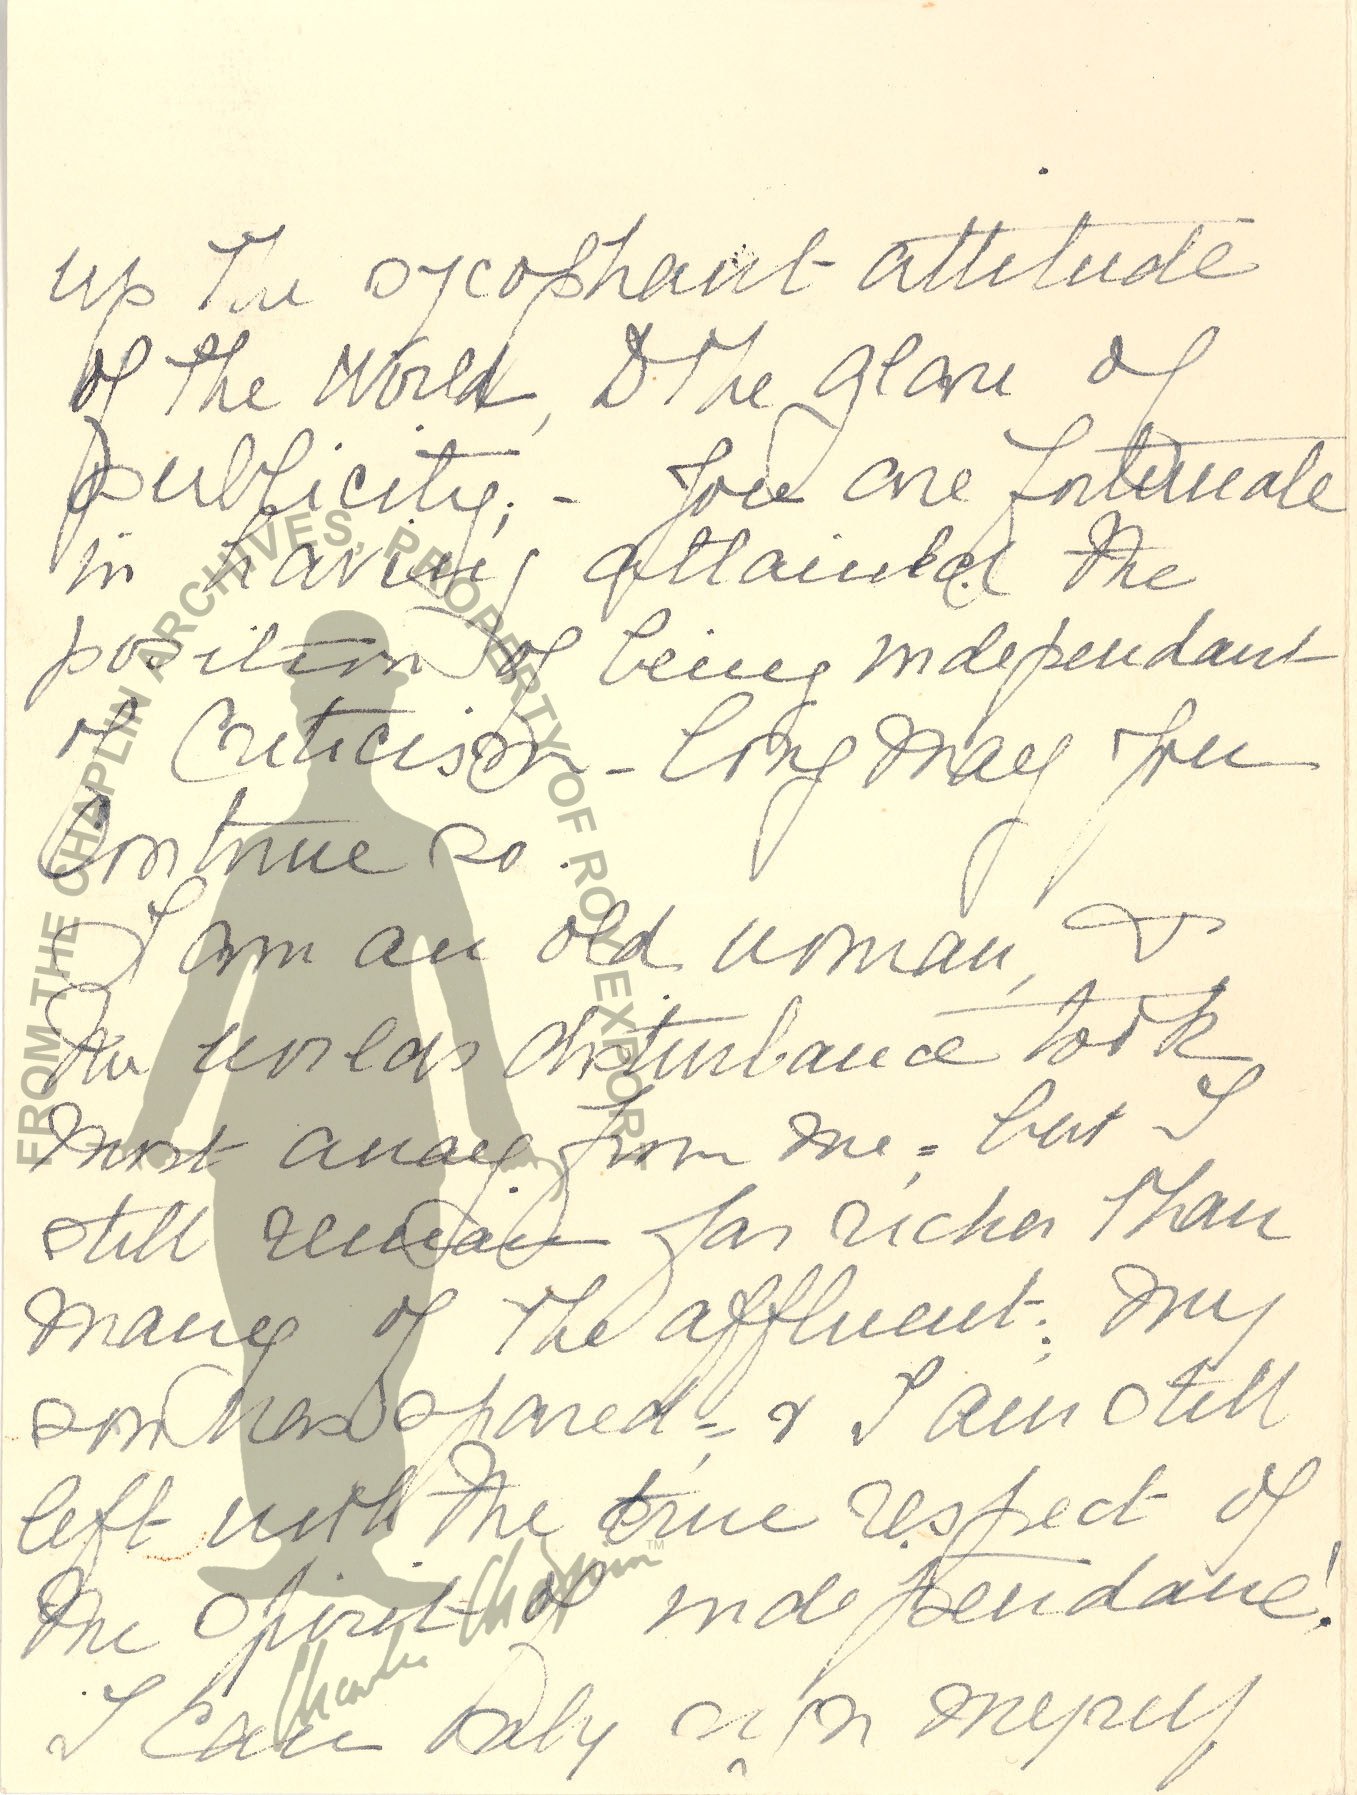 up the sycophant attitude
of the World, & the glare of
publicity; - you are fortunate
in having attained the
position of being independant
of Criticism - long may you
Continue so.
I am an old woman, &
the worlds disturbance took
most away from me, = but I
still remain far richer than
many of the affluent; my
son was spared, = & I am still
left with the true respect of
the spirit of independance!
I can only sign myself
FROM THE CHAPLIN ARCHIVES, PROPERTY OF ROY EXPORT
Charles Chaplin ™